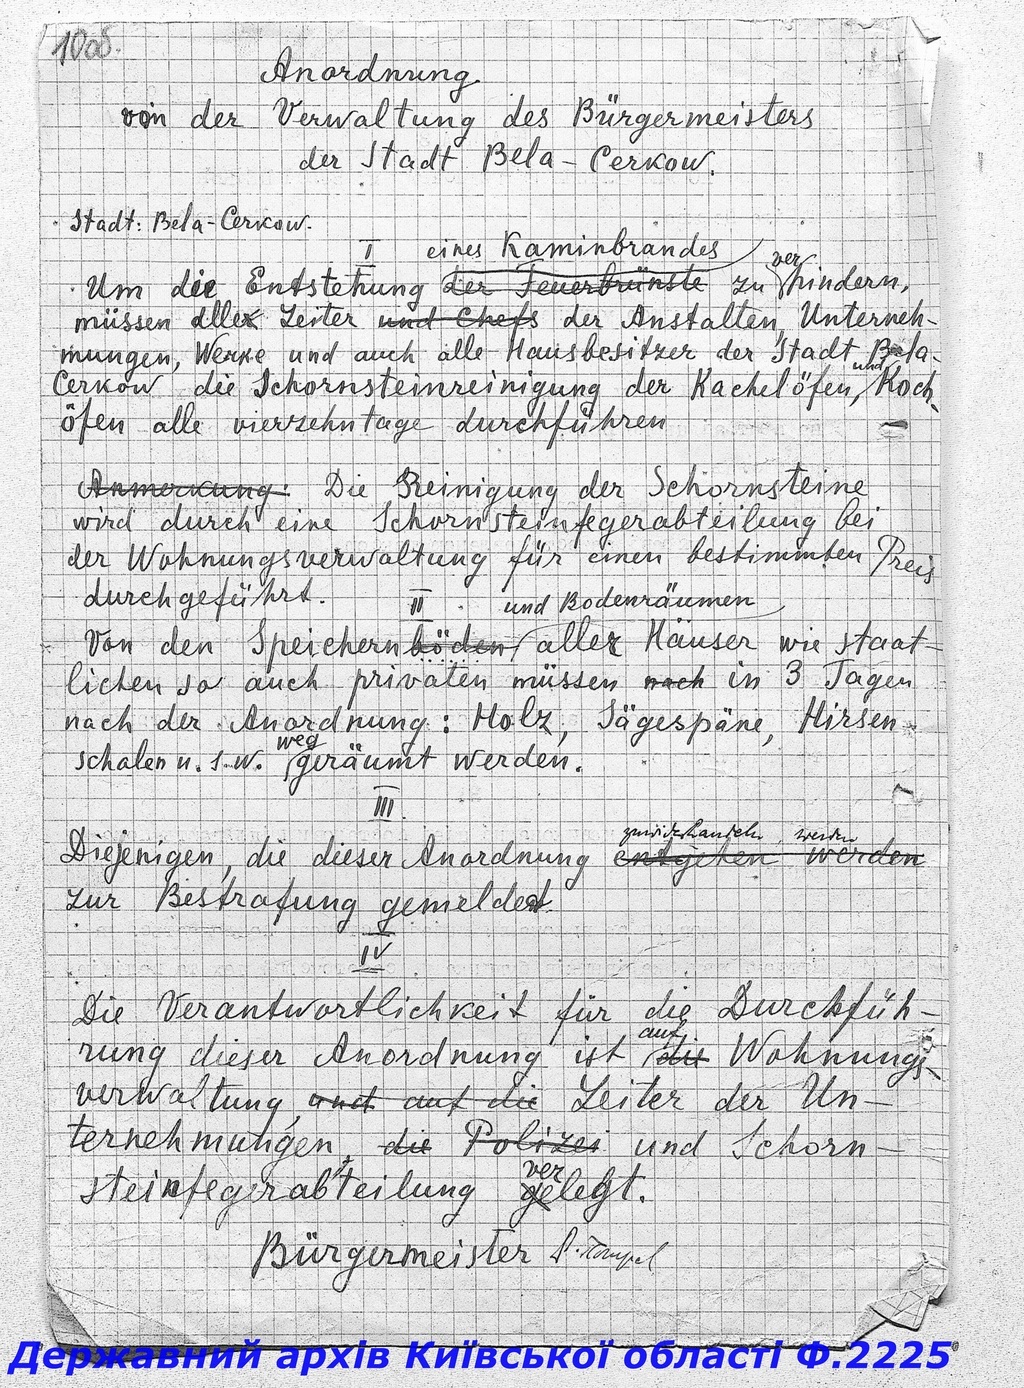 10об.
Anordnung.
von der Verwaltung des Bürgermeisters
der Stadt Bela-Cerkow.
Stadt: Bela-Cerkow.
I eines Kaminbrandes
Um die Entstehung der Feuerbrünste zu verhindern,
müssen alle Leiter und Chefs der Anstalten, Unterneh-
mungen, Werke und auch alle Hausbesitzer der Stadt Bela-
Cerkow die Schornsteinreinigung der Kachelöfen, und Koch-
öfen alle vierzehntage durchführen
Anmerkung: Die Reinigung der Schornsteine
wird durch eine Schornsteinfegerabteilung bei
der Wohnungsverwaltung für einen bestimmten Preis
durchgeführt.
II und Bodenräumen
Von den Speichernböden aller Häuser wie staat-
lichen so auch privaten müssen nach in 3 Tagen
nach der Anordnung: Holz, Sägespäne, Hirsen
schalen u. s. w. weggeräumt werden.
III
zuwiderhandeln, werden
Diejenigen, die dieser Anordnung entgehen werden
zur Bestrafung gemeldet.
IV
Die Verantwortlichkeit für die Durchfüh-
rung dieser Anordnung ist auf die Wohnungs-
verwaltung, und auf die Leiter der Un-
ternehmungen, die Polizei und Schorn-
steinfegerabteilung ver gelegt.
Bürgermeister
Державний архів Київської області Ф.2225